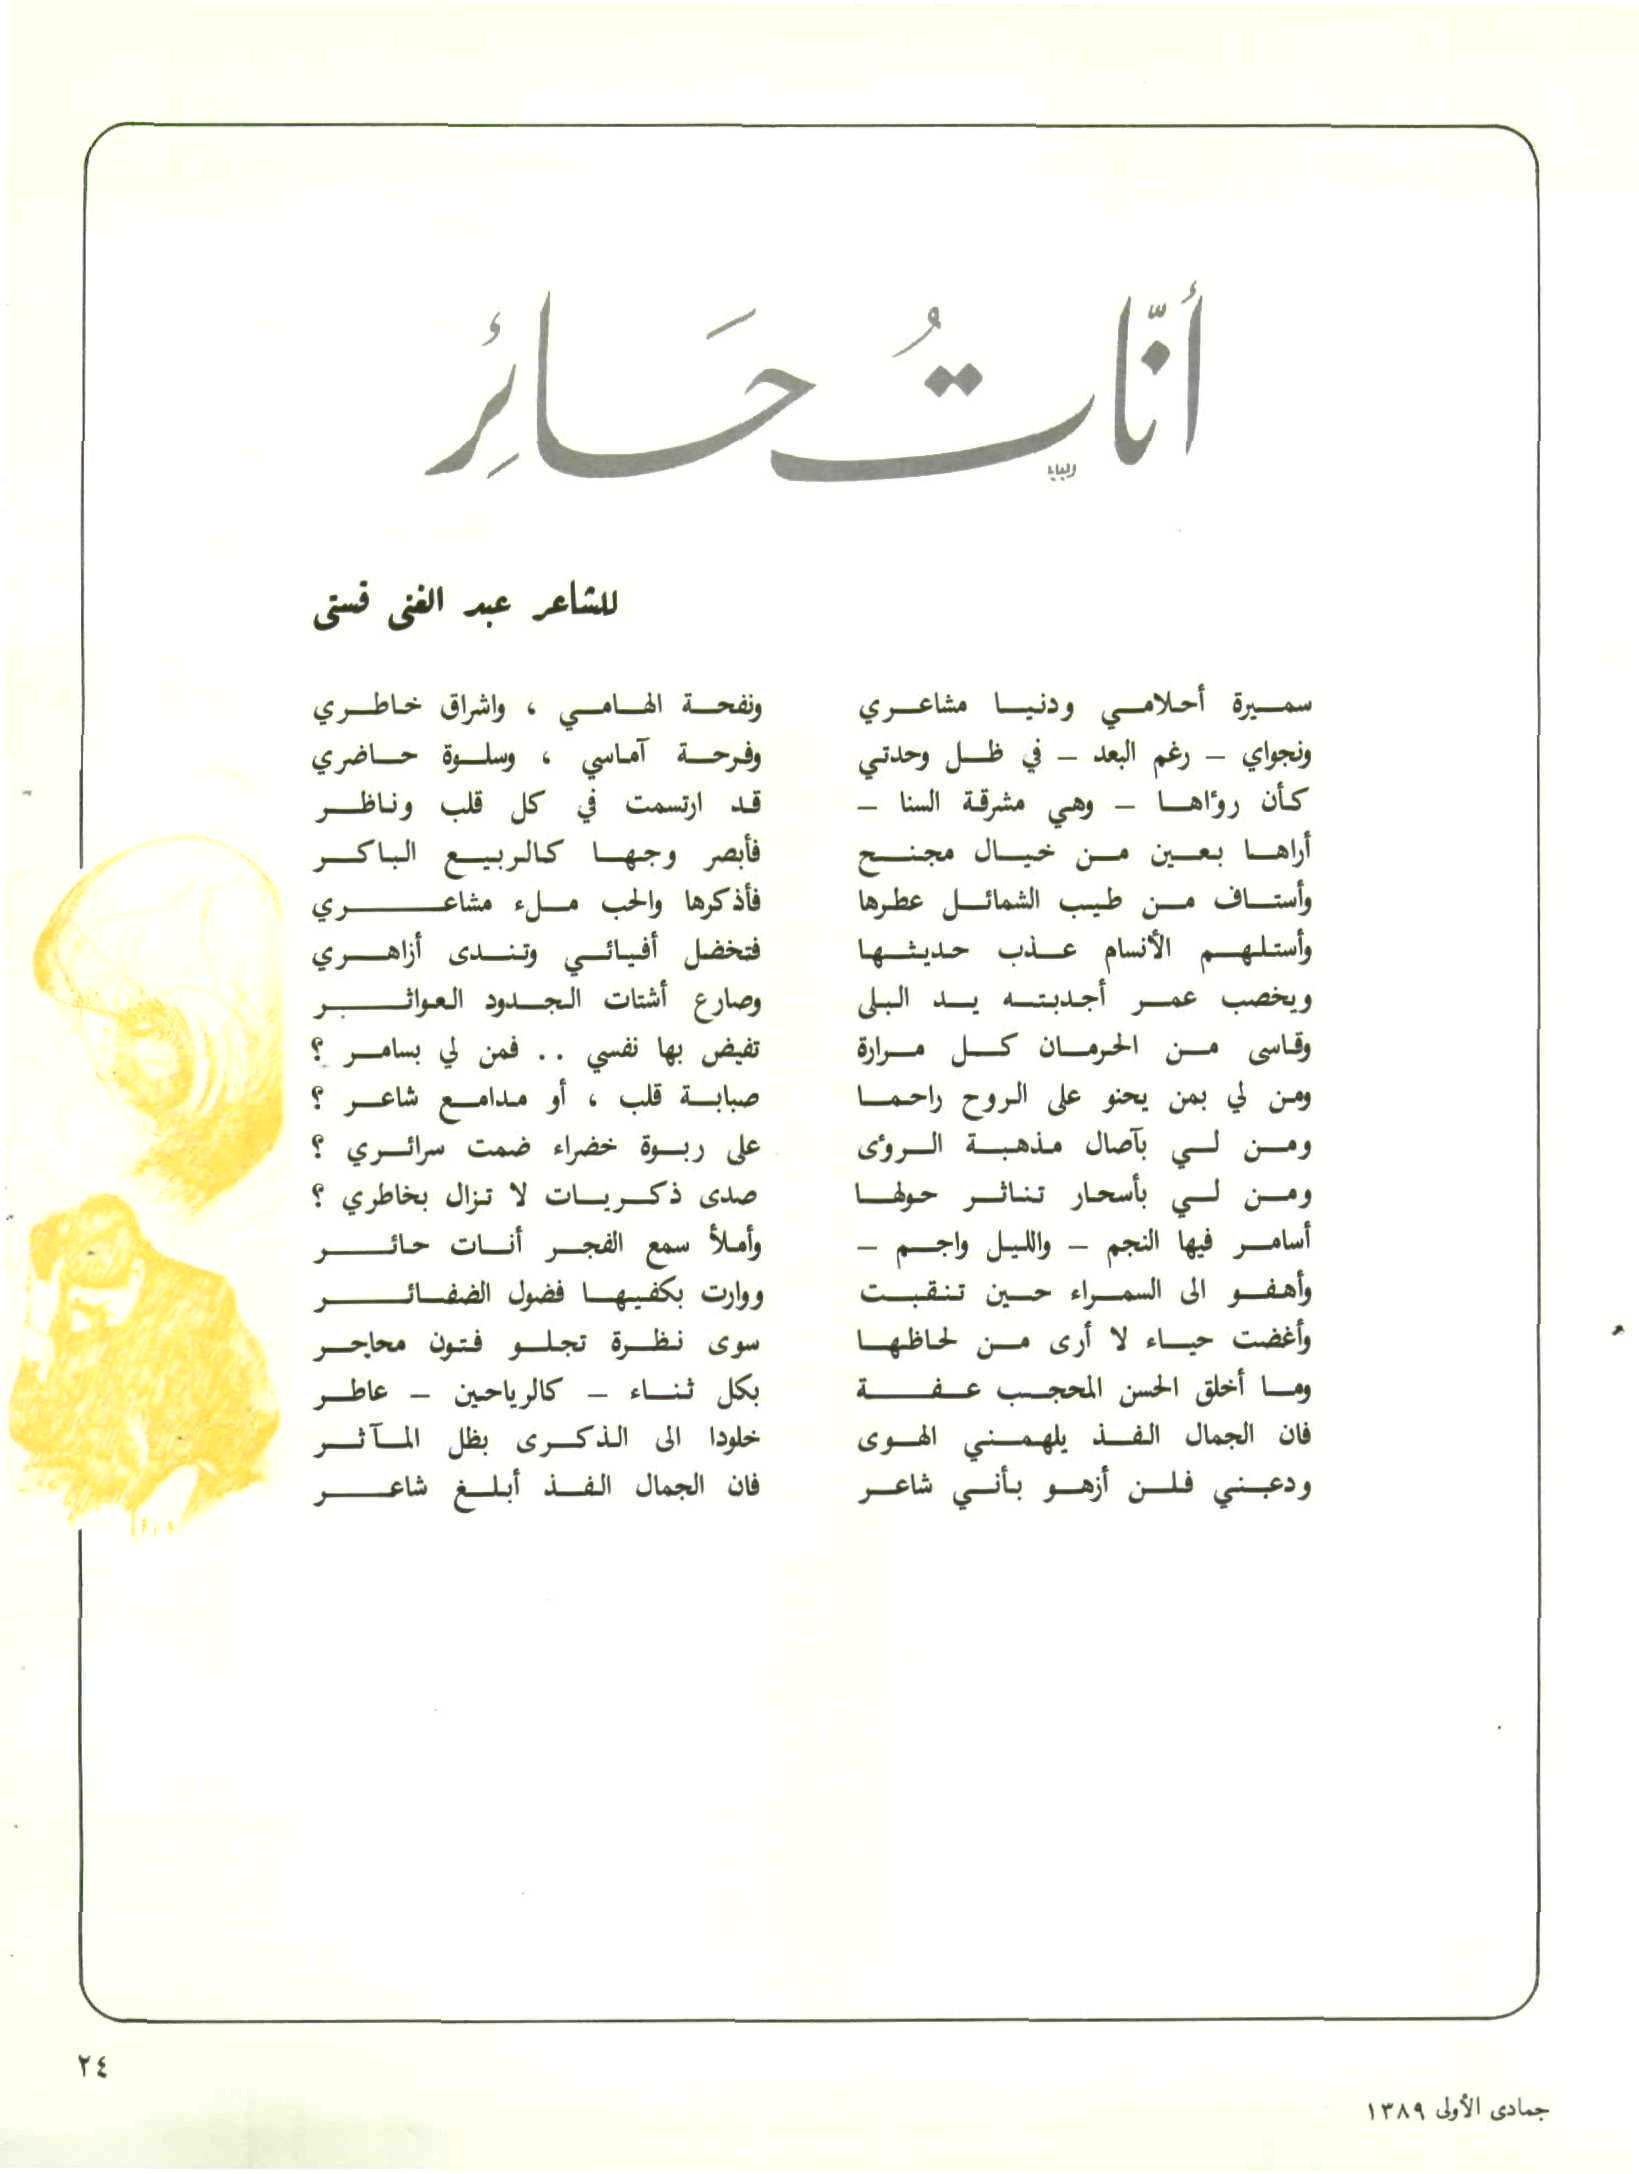 أنّاتُ حَائِر
للشاعر عبد الغني قستي
سميرة أحلامي ودنيا مشاعري ونفحة الهامي ، واشراق خاطري
ونجواي – رغم البعد – في ظل وحدتي وفرحة آماسي ، وسلوة حاضري
كأن رؤاها – وهي مشرقة السنا – قد ارتسمت في كل قلب وناظر
أراها بعين من خيال مجنح فأبصر وجها كالربيع الباكر
وأستاف من طيب الشمائل عطرها فأذكرها والحب ملء مشاعري
وأستلهم الأنسام عذب حديثها فتخضل أفيائي وتندى أزاهري
ويخصب عمر أجدبته يد البلى وصارع أشتات الجدود العواثر
وقاسى من الحرمان كل مرارة تفيض بها نفسي .. فمن لي بسامر ؟
ومن لي بمن يحنو على الروح راحما صبابة قلب ، أو مدامع شاعر ؟
ومن لي بآصال مذهبة الرؤى على ربوة خضراء ضمت سرائري ؟
ومن لي بأسحار تناثر حولها صدى ذكريات لا تزال بخاطري ؟
أسامر فيها النجم – والليل واجم – وأملأ سمع الفجر أنات حائر
وأهفو الى السمراء حين تنقبت ووارت بكفيها فضول الضفائر
وأغضت حياء لا أرى من لحاظها سوى نظرة تجلو فتون محاجر
وما أخلق الحسن المحجب عفة بكل ثناء – كالرياحين – عاطر
فان الجمال الفذ يلهمني الهوى خلودا الى الذكرى بظل المآثر
ودعني فلن أزهو بأني شاعر فان الجمال الفذ أبلغ شاعر
٢٤
جمادى الأولى ١٣٨٩